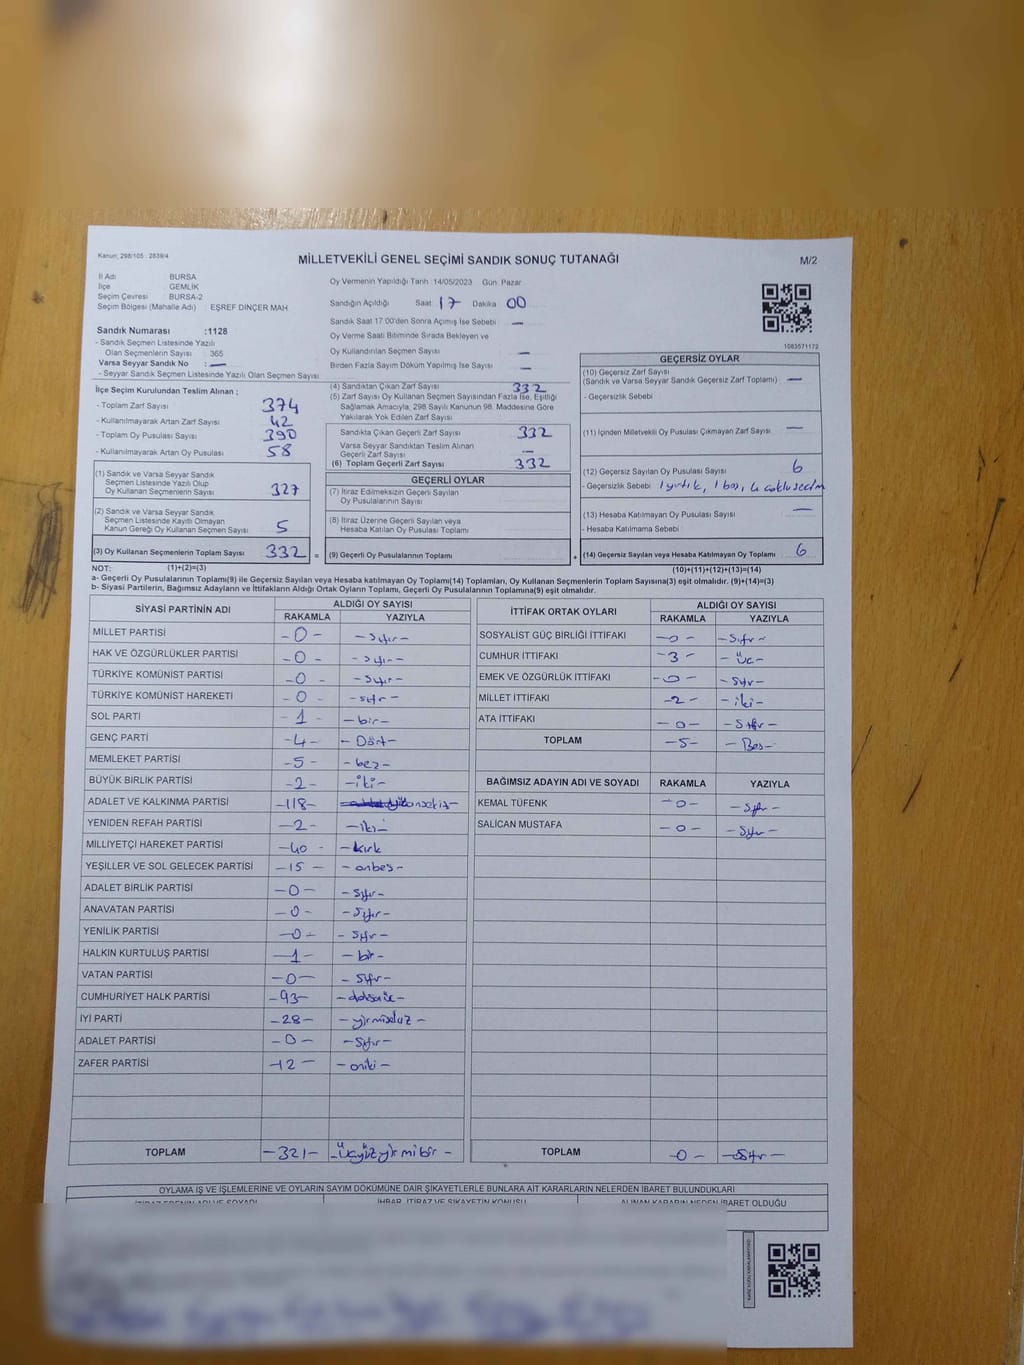 Kanun, 298/105 : 2839/4
MİLLETVEKİLİ GENEL SEÇİMİ SANDIK SONUÇ TUTANAĞI
M/2
İl Adı : BURSA
İlçe : GEMLİK
Seçim Çevresi : BURSA-2
Seçim Bölgesi (Mahalle Adı) : EŞREF DİNÇER MAH
Sandık Numarası :1128
- Sandık Seçmen Listesinde Yazılı
Olan Seçmenlerin Sayısı : 365
Varsa Seyyar Sandık No : —
- Seyyar Sandık Seçmen Listesinde Yazılı Olan Seçmen Sayısı
Oy Vermenin Yapıldığı Tarih 14/05/2023 Gün Pazar
Sandığın Açıldığı Saat 17 Dakika 00
Sandık Saat 17.00'den Sonra Açımış İse Sebebi : —
Oy Verme Saati Bitiminde Sırada Bekleyen ve
Oy Kullandırılan Seçmen Sayısı —
Birden Fazla Sayım Döküm Yapılmış İse Sayısı —
1083571172
İlçe Seçim Kurulundan Teslim Alınan ;
- Toplam Zarf Sayısı 374
- Kullanılmayarak Artan Zarf Sayısı 42
- Toplam Oy Pusulası Sayısı 390
- Kullanılmayarak Artan Oy Pusulası 58
(1) Sandık ve Varsa Seyyar Sandık
Seçmen Listesinde Yazılı Olup
Oy Kullanan Seçmenlerin Sayısı 327
(2) Sandık ve Varsa Seyyar Sandık
Seçmen Listesinde Kayıtlı Olmayan
Kanun Gereği Oy Kullanan Seçmen Sayısı 5
(3) Oy Kullanan Seçmenlerin Toplam Sayısı 332 =
(4) Sandıktan Çıkan Zarf Sayısı 332
(5) Zarf Sayısı Oy Kullanan Seçmen Sayısından Fazla İse, Eşitliği
Sağlamak Amacıyla, 298 Sayılı Kanunun 98. Maddesine Göre
Yakılarak Yok Edilen Zarf Sayısı
Sandıkta Çıkan Geçerli Zarf Sayısı 332
Varsa Seyyar Sandıktan Teslim Alınan
Geçerli Zarf Sayısı —
(6) Toplam Geçerli Zarf Sayısı 332
GEÇERLİ OYLAR
(7) İtiraz Edilmeksizin Geçerli Sayılan
Oy Pusulalarının Sayısı
(8) İtiraz Üzerine Geçerli Sayılan veya
Hesaba Katılan Oy Pusulası Toplamı
(9) Geçerli Oy Pusulalarının Toplamı +
GEÇERSİZ OYLAR
(10) Geçersiz Zarf Sayısı
(Sandık ve Varsa Seyyar Sandık Geçersiz Zarf Toplamı) : —
- Geçersizlik Sebebi :
(11) İçinden Milletvekili Oy Pusulası Çıkmayan Zarf Sayısı —
(12) Geçersiz Sayılan Oy Pusulası Sayısı 6
- Geçersizlik Sebebi : 1 yırtık, 1 boş, 4 çoklu seçim
(13) Hesaba Katılmayan Oy Pusulası Sayısı —
- Hesaba Katılmama Sebebi :
(14) Geçersiz Sayılan veya Hesaba Katılmayan Oy Toplamı 6
NOT: (1)+(2)=(3)
(10)+(11)+(12)+(13)=(14)
a- Geçerli Oy Pusulalarının Toplamı(9) ile Geçersiz Sayılan veya Hesaba katılmayan Oy Toplamı(14) Toplamları, Oy Kullanan Seçmenlerin Toplam Sayısına(3) eşit olmalıdır. (9)+(14)=(3)
b- Siyasi Partilerin, Bağımsız Adayların ve İttifakların Aldığı Ortak Oyların Toplamı, Geçerli Oy Pusulalarının Toplamına(9) eşit olmalıdır.
SİYASİ PARTİNİN ADI ALDIĞI OY SAYISI
RAKAMLA YAZIYLA
MİLLET PARTİSİ -0- -sıfır-
HAK VE ÖZGÜRLÜKLER PARTİSİ -0- -sıfır-
TÜRKİYE KOMÜNİST PARTİSİ -0- -sıfır-
TÜRKİYE KOMÜNİST HAREKETİ -0- -sıfır-
SOL PARTİ -1- -bir-
GENÇ PARTİ -4- -Dört-
MEMLEKET PARTİSİ -5- -beş-
BÜYÜK BİRLİK PARTİSİ -2- -iki-
ADALET VE KALKINMA PARTİSİ -118- yüzonsekiz-
YENİDEN REFAH PARTİSİ -2- -iki-
MİLLİYETÇİ HAREKET PARTİSİ -40- -kırk
YEŞİLLER VE SOL GELECEK PARTİSİ -15- -onbeş-
ADALET BİRLİK PARTİSİ -0- -sıfır-
ANAVATAN PARTİSİ -0- -sıfır-
YENİLİK PARTİSİ -0- -sıfır-
HALKIN KURTULUŞ PARTİSİ -1- -bir-
VATAN PARTİSİ -0- -sıfır-
CUMHURİYET HALK PARTİSİ -93- -doksanüç-
İYİ PARTİ -28- -yirmisekiz-
ADALET PARTİSİ -0- -sıfır-
ZAFER PARTİSİ -12- -oniki-
TOPLAM -321- -üçyüzyirmibir-
İTTİFAK ORTAK OYLARI ALDIĞI OY SAYISI
RAKAMLA YAZIYLA
SOSYALİST GÜÇ BİRLİĞİ İTTİFAKI -0- -sıfır-
CUMHUR İTTİFAKI -3- -üç-
EMEK VE ÖZGÜRLÜK İTTİFAKI -0- -sıfır-
MİLLET İTTİFAKI -2- -iki-
ATA İTTİFAKI -0- -sıfır-
TOPLAM -5- -Beş-
BAĞIMSIZ ADAYIN ADI VE SOYADI RAKAMLA YAZIYLA
KEMAL TÜFENK -0- -sıfır-
SALİCAN MUSTAFA -0- -sıfır-
TOPLAM -0- -sıfır-
OYLAMA İŞ VE İŞLEMLERİNE VE OYLARIN SAYIM DÖKÜMÜNE DAİR ŞİKAYETLERLE BUNLARA AİT KARARLARIN NELERDEN İBARET BULUNDUKLARI
İTİRAZ EDENİN ADI VE SOYADI İHBAR, İTİRAZ VE ŞİKAYETİN KONUSU ALINAN KARARIN NEDEN İBARET OLDUĞU